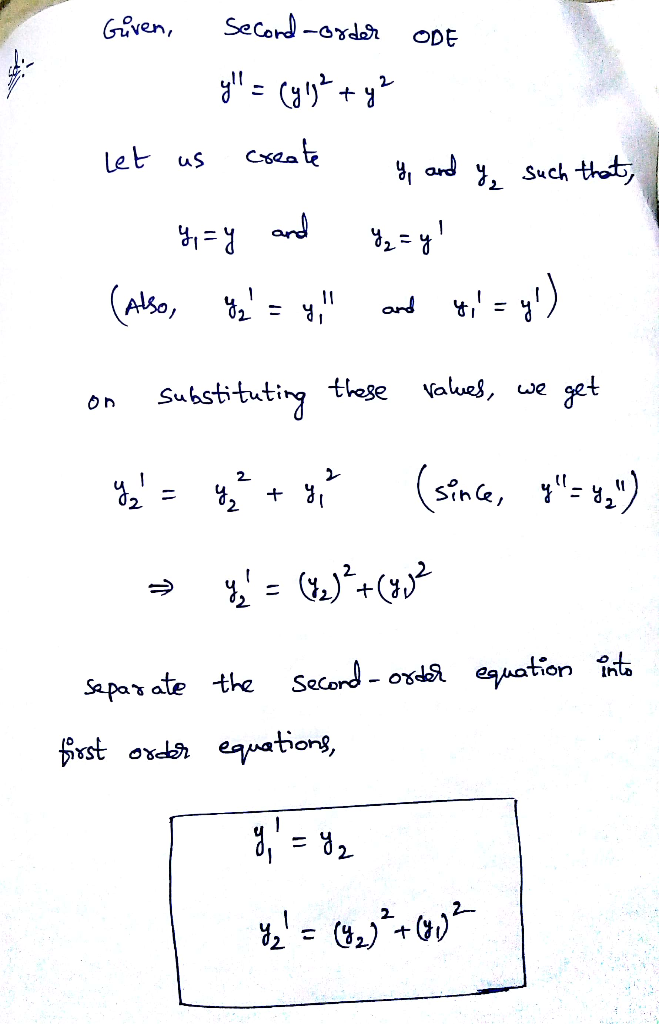 Given, Second-order ODE
Sol:-
y'' = (y')² + y²
Let us create y₁ and y₂ such that,
y₁ = y and y₂ = y'
(Also, y₂' = y₁'' and y₁' = y')
on substituting these values, we get
y₂' = y₂² + y₁² (since, y'' = y₂'')
⇒ y₂' = (y₂)² + (y₁)²
Separate the second-order equation into
first order equations,
y₁' = y₂
y₂' = (y₂)² + (y₁)²